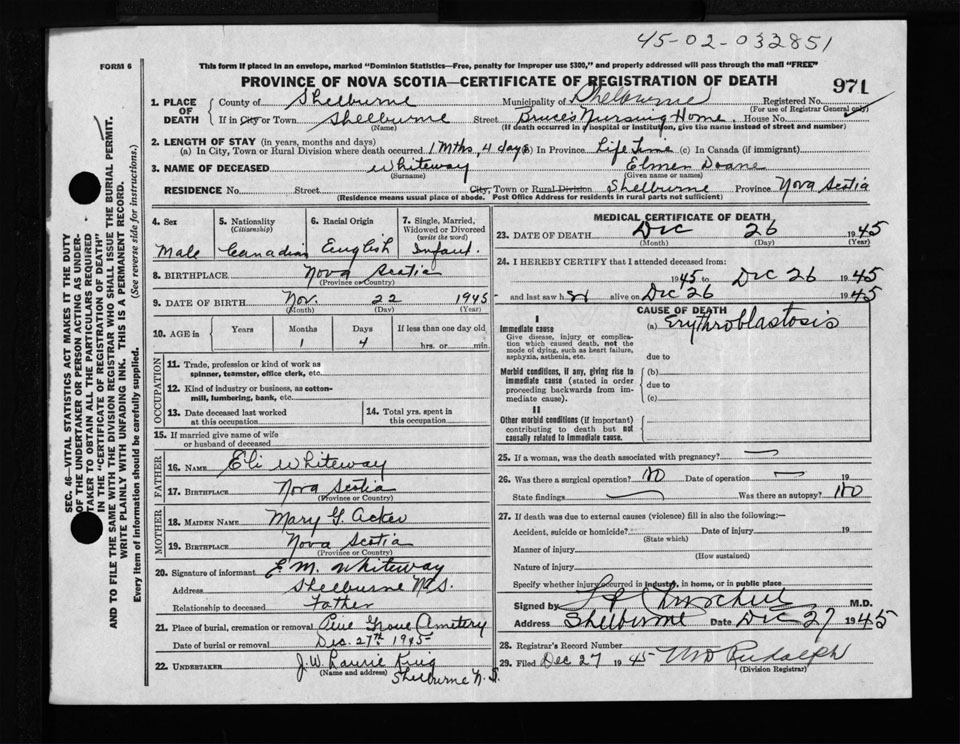 45-02-032851
FORM 6
This form if placed in an envelope, marked "Dominion Statistics—Free, penalty for improper use $300," and properly addressed will pass through the mail "FREE"
PROVINCE OF NOVA SCOTIA—CERTIFICATE OF REGISTRATION OF DEATH
971
1. PLACE OF DEATH
County of Shelburne Municipality of Shelburne Registered No.
(For use of Registrar General only)
If in City or Town Shelburne Street Bruce's Nursing Home. House No.
(Name) (If death occurred in hospital or institution, give the name instead of street and number)
2. LENGTH OF STAY (in years, months and days)
(a) In City, Town or Rural Division where death occurred 1 Mths, 4 days (b) In Province Life Time (c) In Canada (if immigrant)
3. NAME OF DECEASED Whiteway Elmen Doane
(Surname) (Given name or names)
RESIDENCE No. Street City, Town or Rural Division Shelburne Province Nova Scotia
(Residence means usual place of abode. Post Office Address for residents in rural parts not sufficient)
SEC. 46—VITAL STATISTICS ACT MAKES IT THE DUTY
OF THE UNDERTAKER OR PERSON ACTING AS UNDER-
TAKER TO OBTAIN ALL THE PARTICULARS REQUIRED
IN THE "CERTIFICATE OF REGISTRATION OF DEATH"
AND TO FILE THE SAME WITH THE DIVISION REGISTRAR WHO SHALL ISSUE THE BURIAL PERMIT.
WRITE PLAINLY WITH UNFADING INK. THIS IS A PERMANENT RECORD.
Every item of information should be carefully supplied. (See reverse side for instructions.)
4. Sex
Male
5. Nationality
(Citizenship)
Canadian
6. Racial Origin
English
7. Single, Married, Widowed or Divorced
(write the word)
Infant.
8. BIRTHPLACE Nova Scotia
(Province or Country)
9. DATE OF BIRTH Nov. 22 1945
(Month) (Day) (Year)
10. AGE in Years Months Days If less than one day old
1 4 hrs. or min.
OCCUPATION
11. Trade, profession or kind of work as
spinner, teamster, office clerk, etc.
12. Kind of industry or business, as cotton-
mill, lumbering, bank, etc.
13. Date deceased last worked
at this occupation
14. Total yrs. spent in
this occupation
15. If married give name of wife
or husband of deceased
FATHER
16. NAME Eli Whiteway
17. BIRTHPLACE Nova Scotia
(Province or Country)
MOTHER
18. MAIDEN NAME Mary G. Acker
19. BIRTHPLACE Nova Scotia
(Province or Country)
20. Signature of informant E M. Whiteway
Address Shelburne N.S.
Relationship to deceased Father
21. Place of burial, cremation or removal Pine Grove Cemetery
Date of burial or removal Dec. 27th 1945
22. UNDERTAKER J.W. Laurie King
(Name and address) Shelburne N.S.
MEDICAL CERTIFICATE OF DEATH
23. DATE OF DEATH Dec 26 1945
(Month) (Day) (Year)
24. I HEREBY CERTIFY that I attended deceased from:
1945 to Dec 26 1945
and last saw h alive on Dec 26 1945
CAUSE OF DEATH
I
Immediate cause
Give disease, injury or complica-
tion which caused death, not the
mode of dying, such as heart failure,
asphyxia, asthenia, etc.
(a) Erythroblastosis
due to
Morbid conditions, if any, giving rise to
immediate cause (stated in order
proceeding backwards from im-
mediate cause).
(b)
due to
(c)
II
Other morbid conditions (if important)
contributing to death but not
causally related to immediate cause.
25. If a woman, was the death associated with pregnancy?
26. Was there a surgical operation? No Date of operation 19
State findings Was there an autopsy? No
27. If death was due to external causes (violence) fill in also the following:—
Accident, suicide or homicide? Date of injury 19
(State which)
Manner of injury
(How sustained)
Nature of injury
Specify whether injury occurred in industry, in home, or in public place
Signed by M.D.
Address Shelburne Date Dec 27 1945
28. Registrar's Record Number
29. Filed Dec 27 1945 Rudolph
(Division Registrar)